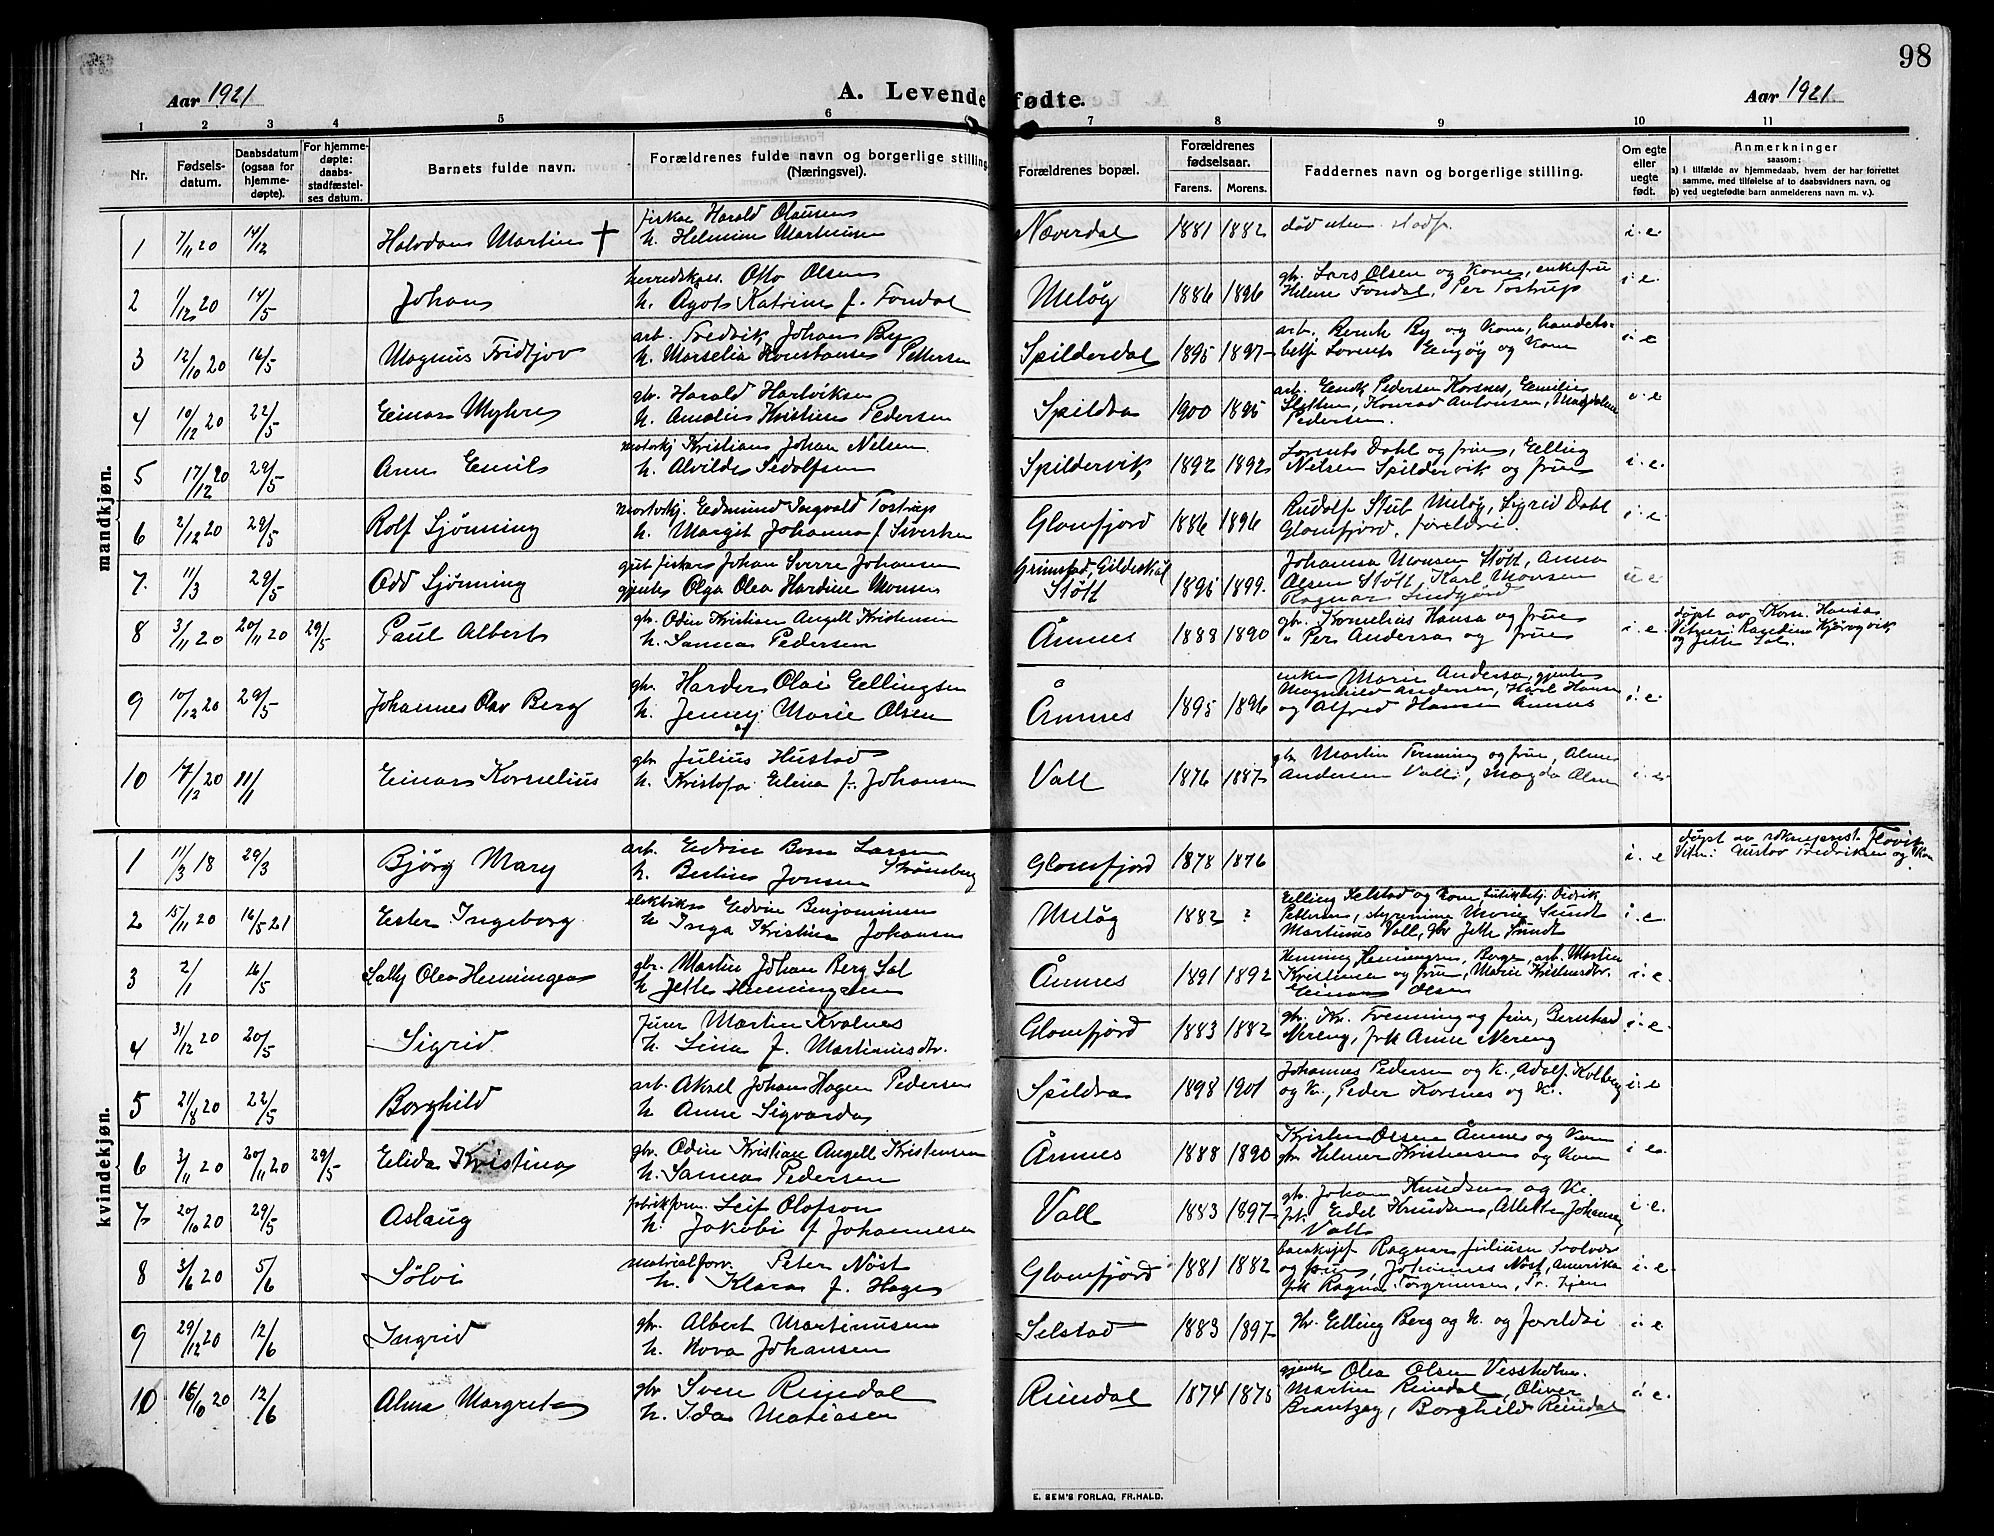 98
Aar 1921 A. Levende fødte. Aar 1921
1 2 3 4 5 6 7 8 9 10 11
Nr. Fødsels-datum. Daabsdatum (ogsaa for hjemme-døpte). For hjemme-døpte: daabs-stadfæstel-ses datum. Barnets fulde navn. Forældrenes fulde navn og borgerlige stilling (Næringsvei). Forældrenes bopæl. Forældrenes fødselsaar. Farens. Morens. Faddernes navn og borgerlige stilling. Om egte eller uegte født. Anmerkninger saasom: a) i tilfælde av hjemmedaab, hvem der har forrettet samme, med tilføielse af to daabsvidners navn, og b) ved uegtefødte barn anmelderens navn m. v.).
mandkjøn.
1 7/11 20 14/12 Halvdan Martin † fisker Harald Olausen
h. Helmine Martinusen Næverdal 1881 1882 død uten stadf. i. e.
2 1/12 20 14/5 Johan herredskas. Otto Olsen
h. Agot Katrine f. Fondal Meløy 1886 1896 gbr. Lars Olsen og kone, enkefru
Helene Fondal, Per Tostrup i e
3 12/10 20 16/5 Magnus Fridtjov arb. Fredrik Johan By
h. Marselia Konstanse Pettersen Spilderdal 1895 1897 arb. Bernt By og kone, handels-
betj. Lorents Engøy og kone i e
4 10/12 20 22/5 Einar Myhre gbr. Harald Hartviksen
h. Amalie Kristine Pedersen Spildra 1900 1895 arb. Enok Pedersen Korsnes, Emilie
Slotten, Konrad Antonsen, Magdalene
Pedersen. i e
5 17/12 20 29/5 Arne Emil motorkj Kristian Johan Nelsen
h. Alvilde Sedolfsen Spildervik 1892 1892 Lorents Dahl og frue, Elling
Nelsen Spildervik og frue i. e.
6 2/12 20 29/5 Rolf Ljønning motorkj. Edmund Ingvald Tostrup
h. Margit Johanna f. Sivertsen Glomfjord 1886 1896 Rudolf Stub Meløy, Sigrid Dahl
Glomfjord, foreldri. i. e
7. 11/3 29/5 Odd Ljønning gut fisker Johan Sverre Johansen
gjente Olga Olea Hardine Monsen Grimstad, Gildeskål
Støtt 1895 1899. Johanna Monsen Støtt, Anna
Olsen Støtt, Karl Monsen
Ragnar Lundgård u e
8 3/11 20 20/11 20 29/5 Paul Albert gbr. Odin Kristian Angell Kristensen
h. Sanna Pedersen Åmnes 1888 1890 gbr. Kornelius Hansa og frue
" Per Andersa og frue i. e. døpt av Korn. Hansa
Vitner: Randine Kjørsvik
og Jette Sal.
9 10/12 20 29/5 Johannes Olav Berg gbr. Harder Olai Ellingsen
h. Jenny Marie Olsen Åmnes 1895 1896 enke Marie Andersa, gjente
Magnhild Andersen, Harl Hansen
og Alfred Hansen Åmnes i. e.
10 17/12 20 11/1 Einar Kornelius gbr Julius Hustad
h. Kristofa Elina f. Johansen Vall 1876 1887 gbr Martin Fenning og frue, Alma
Andersen Valli, Magda Olsen i. e
kvindekjøn.
1 11/3 18 29/3 Bjørg Mary arb. Edvin Larsen Strømsberg
h. Berline Jonsen Glomfjord 1878 1876 i. e døpt av sokneprest Flovik
Vitn: Gustav Fredriksen og kone
2 15/11 20 16/5 21 Ester Ingeborg elektriker Edvin Benjaminsen
h Inga Kristine Johansen Meløy 1882 ? Elling Selstad og kone, butikbetj. Didrik
Pettersen, styrerinne Marie Sundt
Martinus Vall, gbr Jette Sundt i. e.
3 2/1 16/5 Sally Olea Heminga gbr. Martin Johan Berg Sal
h Jette Henningsen Åmnes 1891 1892 Henning Henningsen, Berge, arb. Martin
Kristensen og frue, Marie Kristensdtr.
Einar Olsen i. e.
4 31/12 20 20/5 Sigrid Martin Kvalnes
h. Lina f. Martinusdtr. Glomfjord 1883 1882 gbr. Kr. Frenning og frue, Bernhard
Nereng, frk Anne Nereng i. e.
5 21/8 20 22/5 Borghild arb. Aksel Johan Hagen Pedersen
h Anne Sigvarda Spildra 1898 1901 Johannes Pedersen og k., Adolf Kolberg
og k., Peder Korsnes og k. i. e
6 3/11 20 20/11 20 29/5 Elida Kristina gbr. Odin Kristian Angell Kristensen
h. Sanna Pedersen Åmnes 1888 1890 Kristen Olsen Åmnes og kone
gbr Helmer Kristensen og kone i e.
7 20/10 20 29/5 Aslaug fabrikform. Leif Olofson
h. Jakobi f Johannesen Vall 1883 1897 gbr. Johan Knudsen og k.
frk. Eidel Knudsen, Alette Johansen,
Vall i. e.
8 3/6 20 5/6 Sølvi materialforv. Peter Nöst
h. Klara f. Hagen Glomfjord 1881 1882 Ragnar Juliussen Svolvær
og frue, Johannes Nöst, Amerika
frk Ragna Torgrimsen, Tr. hjem i. e
9 29/12 20 12/6 Ingrid gbr. Albert Martinusen
h. Nova Johansen Selstad 1883 1897 gbr. Elling Berg og k. og foreldri i. e
10 16/10 20 12/6 Alma Margreta gbr Sven Reindal
h. Ida Matiasen Reindal 1874 1875 gjente Olea Olsen Vessholm.
Martin Reindal, Oliver
Brantzæg, Borghild Reindal i e.
E. SEM'S FORLAG, FR.HALD.